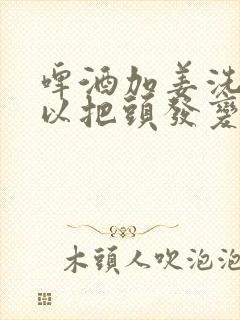 啤酒加姜洗
以把頭發變
木頭人吹泡泡